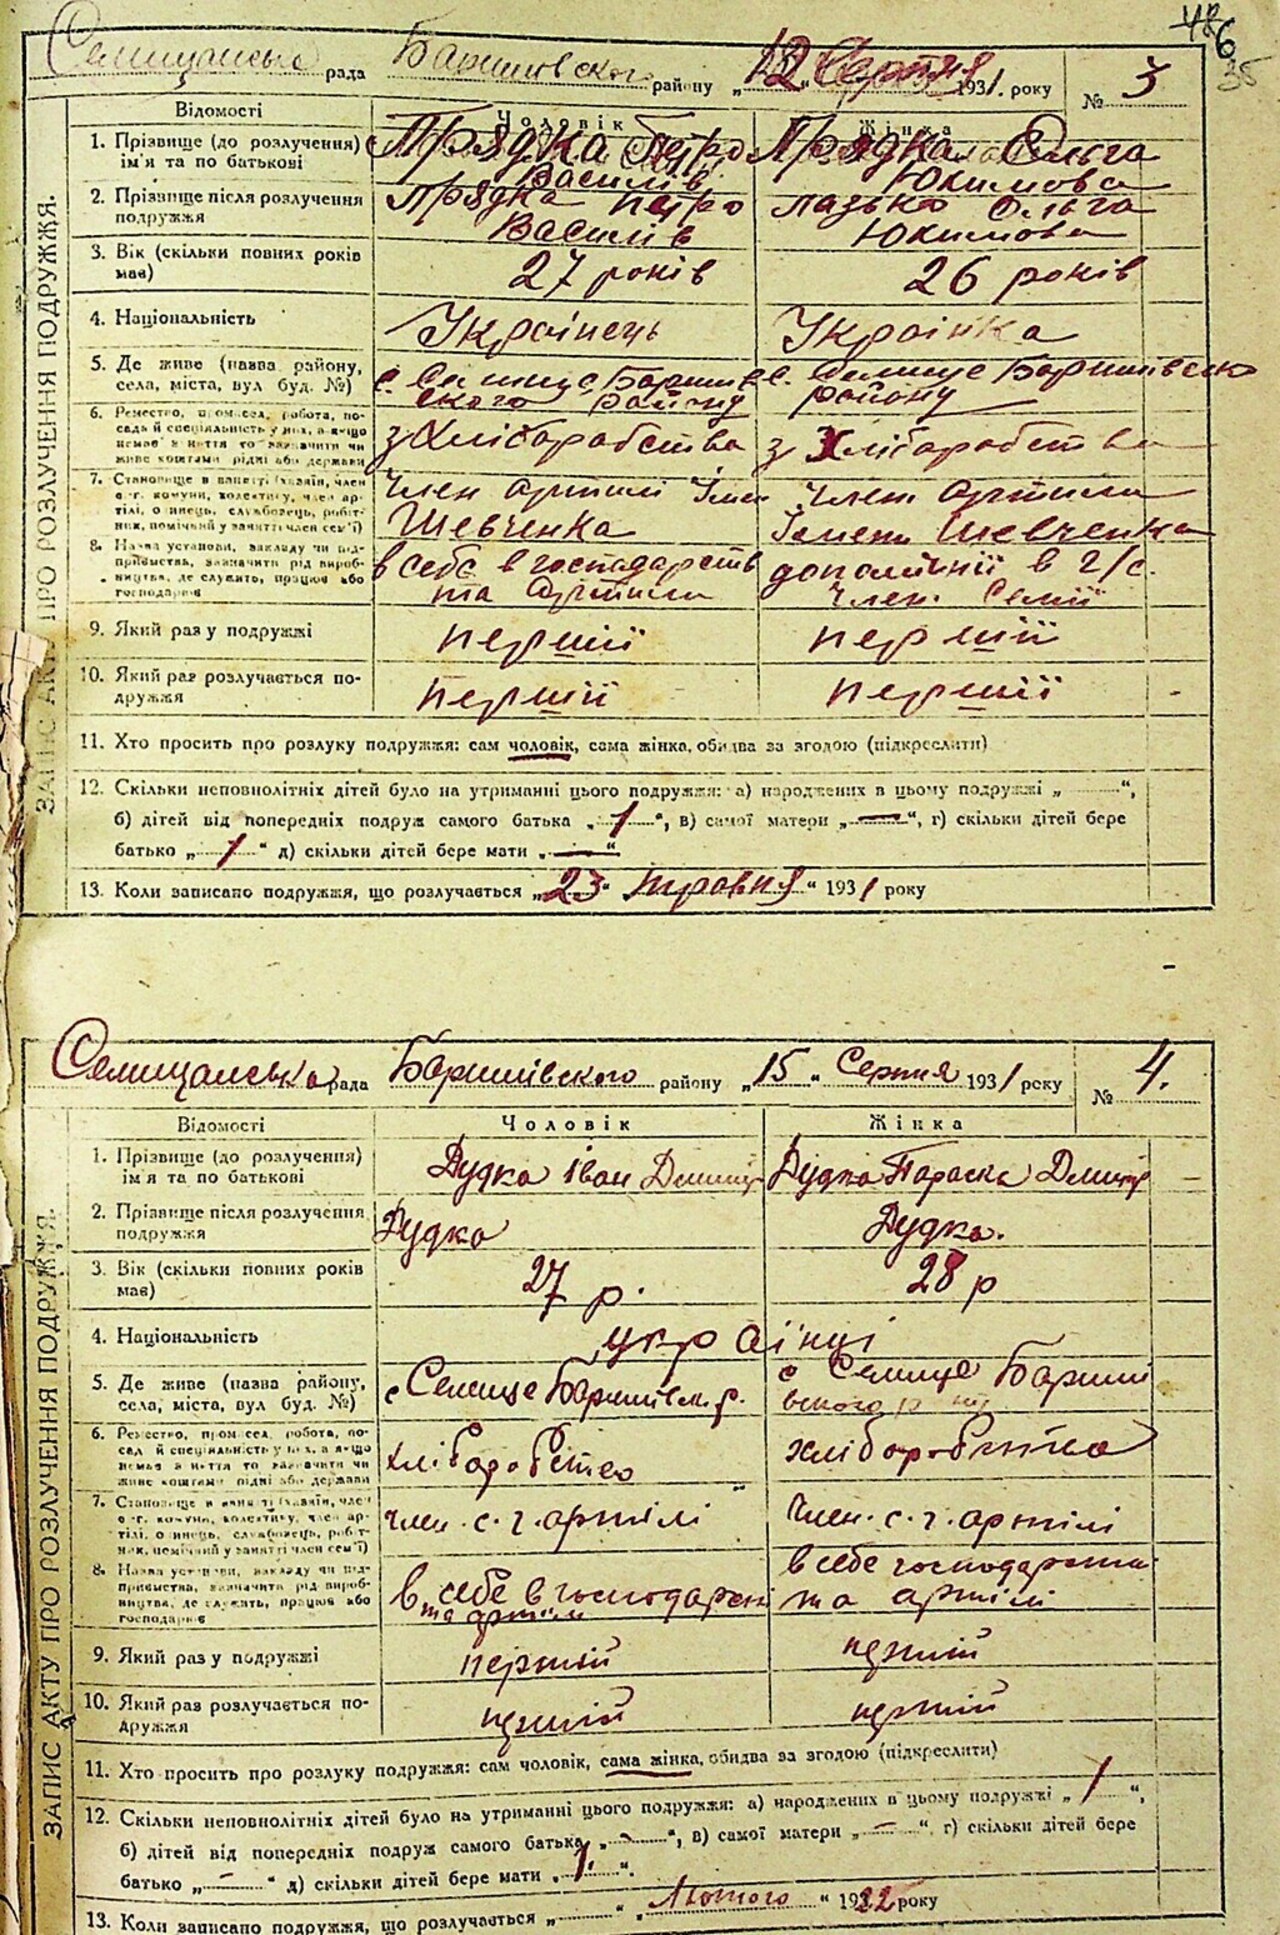 48
6
35
Селищанська рада Баришовского району „12" Серпня 1931. року № 3
ЗАПИС АКТУ ПРО РОЗЛУЧЕННЯ ПОДРУЖЖЯ.
Відомості Чоловік Жінка
1. Прізвище (до розлучення) ім'я та по батькові
Прядка Петро Василів
Прядка Ольга Юкимова
2. Прізвище після розлучення подружжя
Прядка Петро Василів
Лазько Ольга Юкимова
3. Вік (скільки повних років має)
27 років
26 років
4. Національність
Українець
Українка
5. Де живе (назва району, села, міста, вул буд. №)
с. Селище Баришивского району
с. Селище Баришівского району
6. Ремество, промисел, робота, посада й спеціяльність у них, а якщо немає з життя то зазначити чи живе коштами рідні або держави
з Хліборобства
з Хліборобства
7. Становище в занятті (хазяїн, член с.-г. комуни, колективу, член артілі, одинець, службовець, робітник, помічний у занятті член сем'ї)
Член Артили Імен Шевченка
Член Артили Імени Шевченка
8. Назва установи, закладу чи підприємства, зазначити рід виробництва, де служить, працює або господарює
в себе в господарств та Артили
9. Який раз у подружжі
перший
перший
10. Який раз розлучається подружжя
перший
перший
11. Хто просить про розлуку подружжя: сам чоловік, сама жінка, обидва за згодою (підкреслити)
12. Скільки неповнолітніх дітей було на утриманні цього подружжя: а) народжених в цьому подружжі „ ",
б) дітей від попередніх подруж самого батька „ 1 ", в) самої матери „ — ", г) скільки дітей бере
батько „ 1 " д) скільки дітей бере мати „ — "
13. Коли записано подружжя, що розлучається „23" травня 1931 року
Селищанська рада Баришівского району „15" Серпня 1931 року № 4.
ЗАПИС АКТУ ПРО РОЗЛУЧЕННЯ ПОДРУЖЖЯ.
Відомості Чоловік Жінка
1. Прізвище (до розлучення) ім'я та по батькові
Дудка Іван Дмитр
Дудка Параска Дмитр
2. Прізвище після розлучення подружжя
Дудка
Дудка.
3. Вік (скільки повних років має)
27 р.
28 р
4. Національність
українці
5. Де живе (назва району, села, міста, вул буд. №)
с Селище Баришівск. р.
с Селище Баришівского
6. Ремество, промисел, робота, посада й спеціяльність у них, а якщо немає з життя то зазначити чи живе коштами рідні або держави
хліборобство
хліборобство
7. Становище в занятті (хазяїн, член с.-г. комуни, колективу, член артілі, одинець, службовець, робітник, помічний у занятті член сем'ї)
Член. с. г. артілі
Член. с. г. артілі
8. Назва установи, закладу чи підприємства, зазначити рід виробництва, де служить, працює або господарює
в себе в господарст та артілі
в себе господарства та артілі
9. Який раз у подружжі
перший
перший
10. Який раз розлучається подружжя
перший
перший
11. Хто просить про розлуку подружжя: сам чоловік, сама жінка, обидва за згодою (підкреслити)
12. Скільки неповнолітніх дітей було на утриманні цього подружжя: а) народжених в цьому подружжі „ 1 ",
б) дітей від попередніх подруж самого батька „ - ", в) самої матери „ — ", г) скільки дітей бере
батько „ - " д) скільки дітей бере мати „ 1. ".
13. Коли записано подружжя, що розлучається „ " Лютого " 1922 року